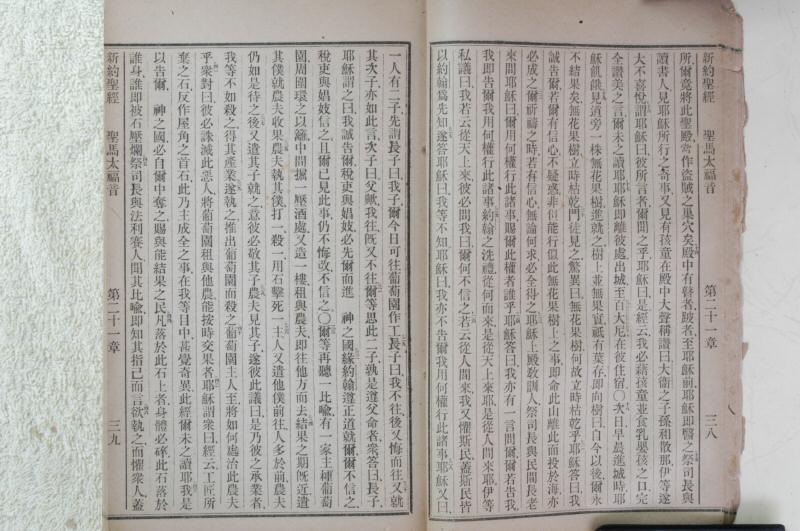 新約聖經 聖馬太福音 第二十一章 三八
所爾竟將此聖殿當作盜賊之巢穴矣殿中有瞽者跛者至耶穌前耶穌即醫之祭司長與
讀書人見耶穌所行之奇事又見有孩童在殿中大聲稱讚曰大衛之子孫和散那伊等遂
大不喜悅謂耶穌曰彼所言者爾聞之乎耶穌曰然經云我必藉孩童並食乳嬰孩之口完
全讚美之言爾未之讀耶耶穌即離彼處出城至百大尼在彼住宿〇次日早晨進城時耶
穌飢餓見道旁一株無花果樹進就之樹上並無果實祇有葉存即向樹曰自今以後爾永
不結果矣無花果樹立時枯乾門徒見之驚異曰無花果樹何故立時枯乾乎耶穌答曰我
誠告爾若爾有信心不疑惑非但能行似此無花果樹上之事即命此山離此而投於海亦
必成之爾祈禱之時若有信心無論何求必全得之耶穌上殿敎訓人祭司長與民間長老
來問耶穌曰爾用何權行此諸事賜爾此權者誰乎耶穌答曰我亦有一言問爾爾若告我
我即告爾我用何權行此諸事約翰之洗禮從何而來是從天上來耶是從人間來耶伊等
私議曰我若云從天上來彼必問我曰爾何不信之若云從人間來我又懼斯民蓋斯民皆
以約翰爲先知遂答耶穌曰我等不知耶穌曰我亦不告爾我用何權行此諸事耶穌又曰
一人有二子先謂長子曰我子爾今日可往葡萄園作工長子曰我不往後又悔而往又就
其次子亦如此言次子曰父歟我往旣又不往爾等思此二子孰是遵父命者衆答曰長子
耶穌謂之曰我誠告爾稅吏與娼妓必先爾而進 神之國緣約翰遵正道就爾爾不信之
稅吏與娼妓信之且爾已見此事仍不悔改不信之〇爾等再聽一比喩有一家主種葡萄
園周圍環之以籬中間掘一壓酒處又造一樓租與農夫即往他方而去結果之期旣近遣
其僕就農夫收果農夫執其僕打一殺一用石擊死一主人又遣他僕前往人多於前農夫
仍如是待之後又遣其子就之意彼必敬其子農夫見其子遂彼此議曰是乃彼之承業者
我等不如殺之得其產業遂執之推出葡萄園而殺之葡萄園主人至將如何處治此農夫
乎衆對曰彼必誅滅此惡人將葡萄園租與他農能按時交果者耶穌謂衆曰經云工匠所
棄之石反作屋角之首石此乃主成全之事在我等目中甚覺奇異此經爾未之讀耶我是
以告爾 神之國必自爾中奪之賜與能結果之民凡落於此石上者身體必碎此石落於
誰身誰即被石壓爛祭司長與法利賽人聞其比喩即知其指己而言欲執之而懼衆人蓋
新約聖經 聖馬太福音 第二十一章 三九